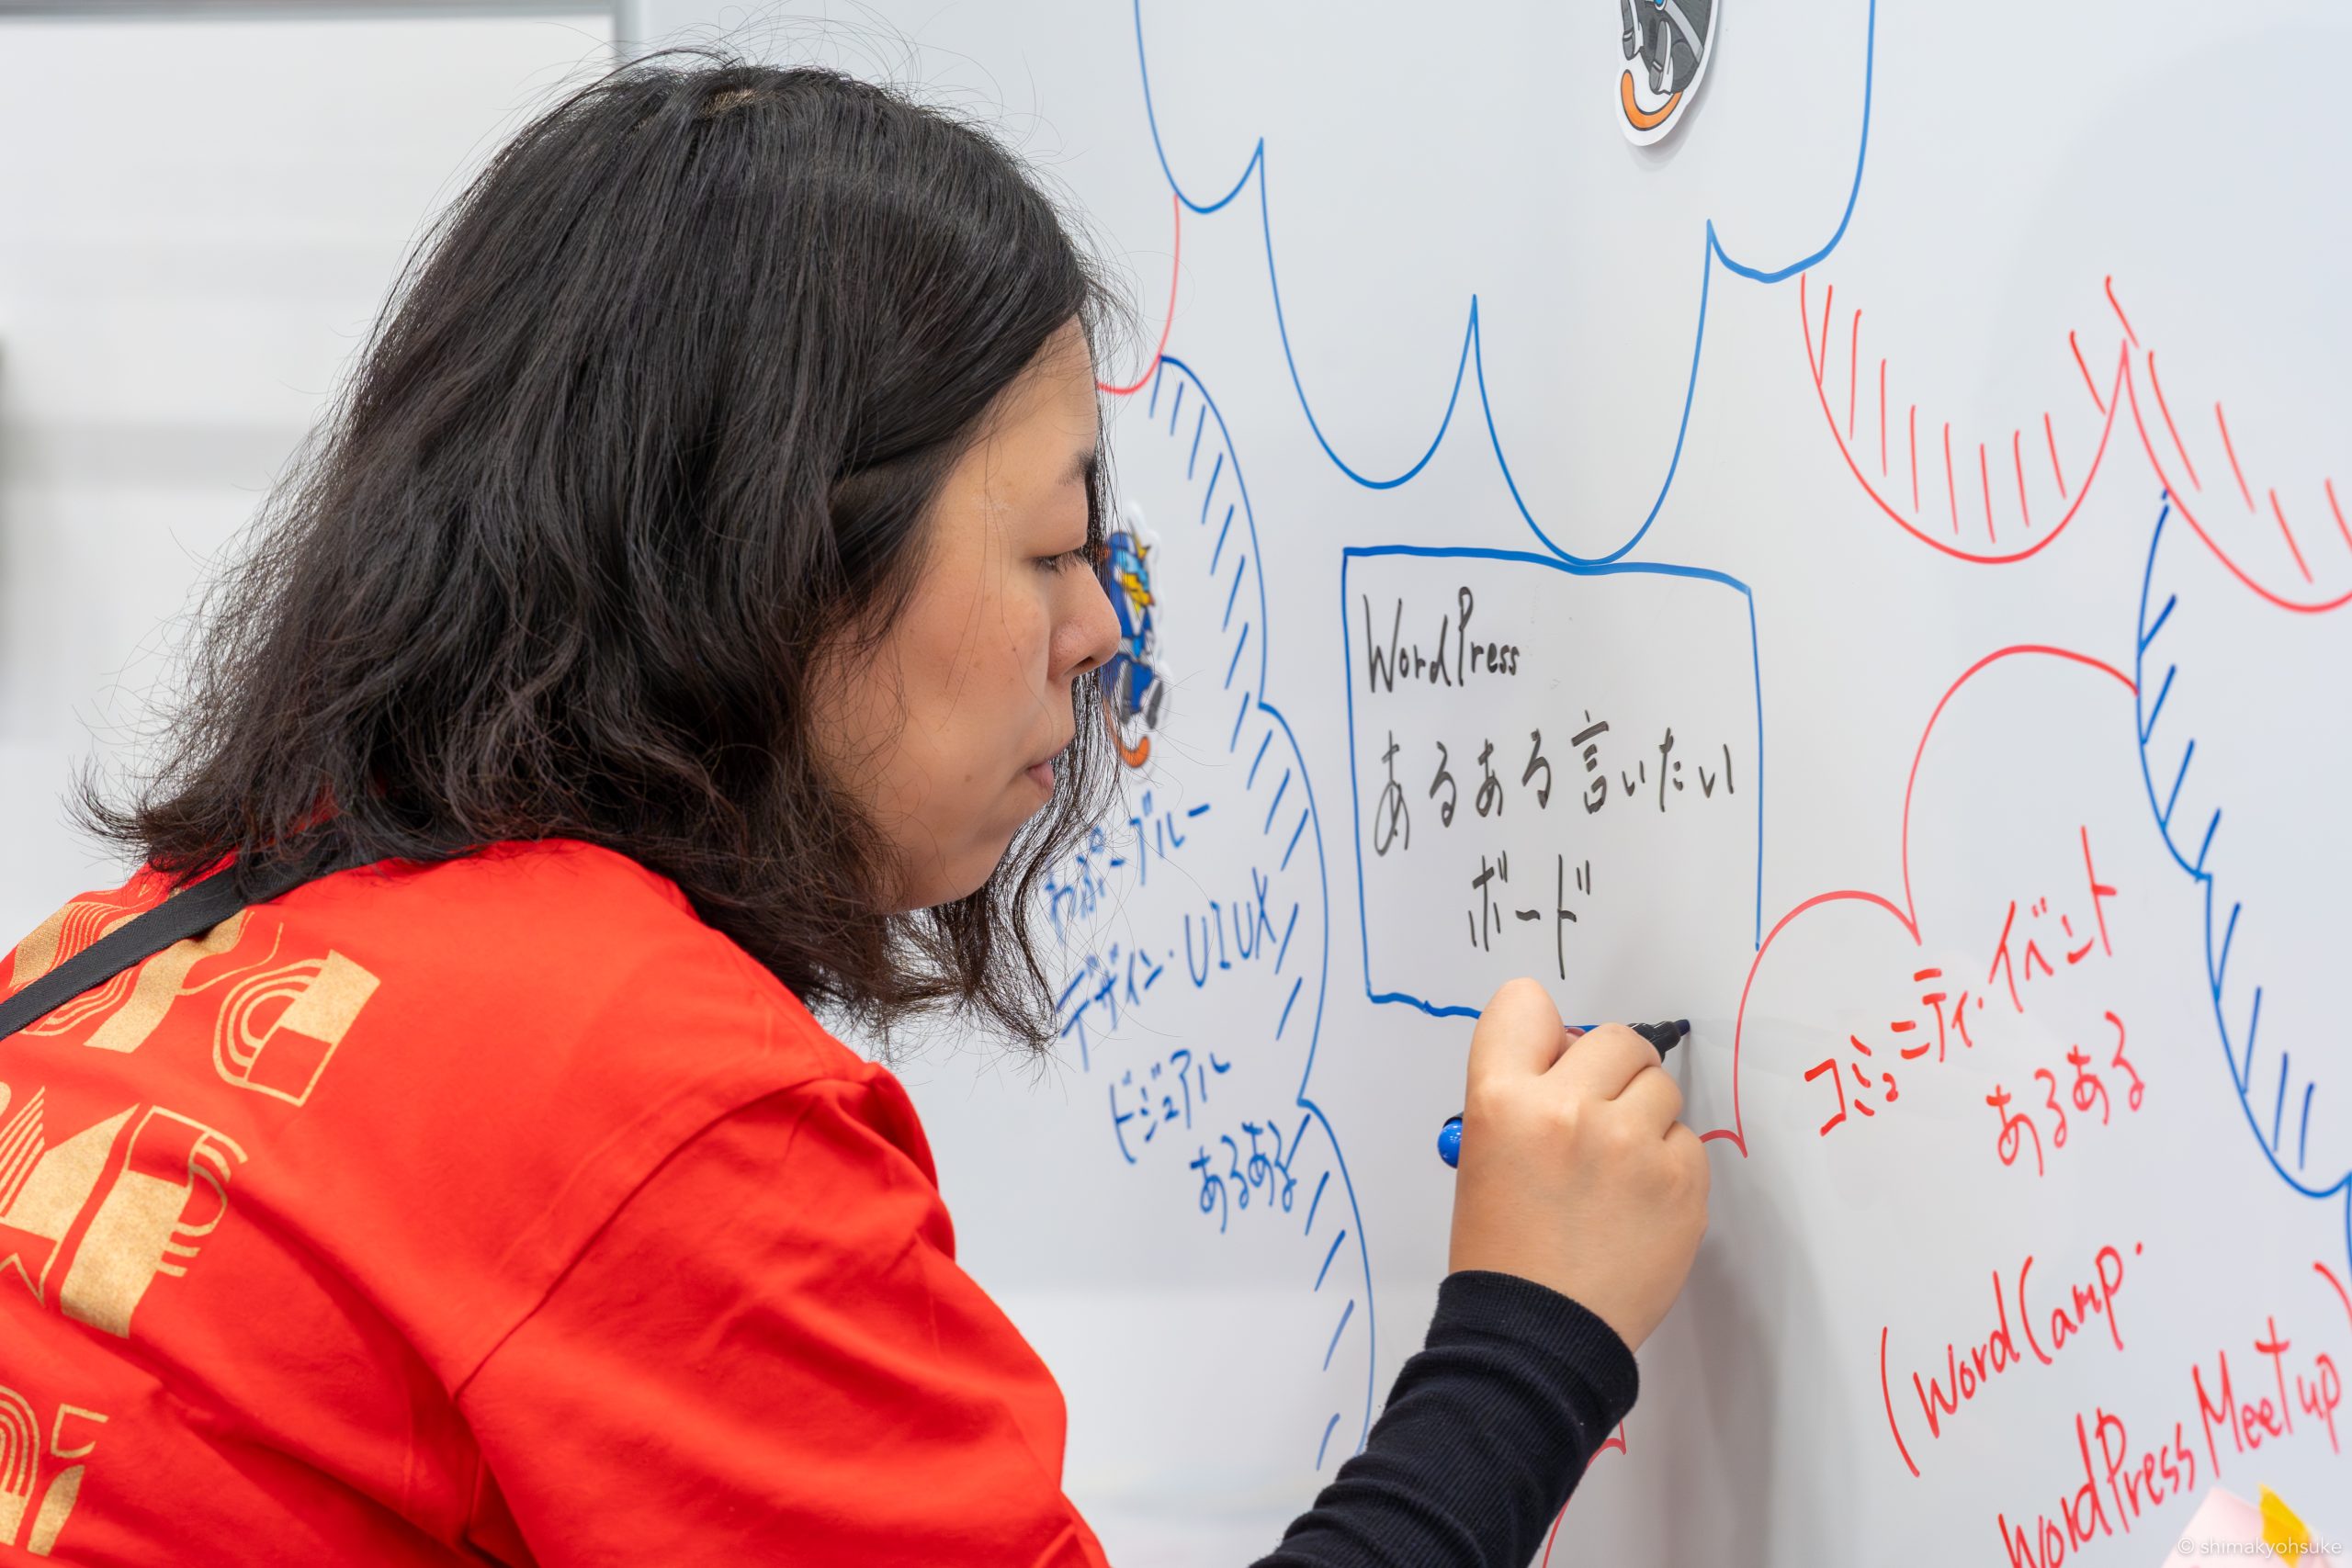 WordPress
あるある言いたい
ボード
わぷーブルー
デザイン・UIUX
ビジュアル
あるある
コミュニティ・イベント
あるある
(WordCamp・
WordPress Meetup)
© shimakyohsuke